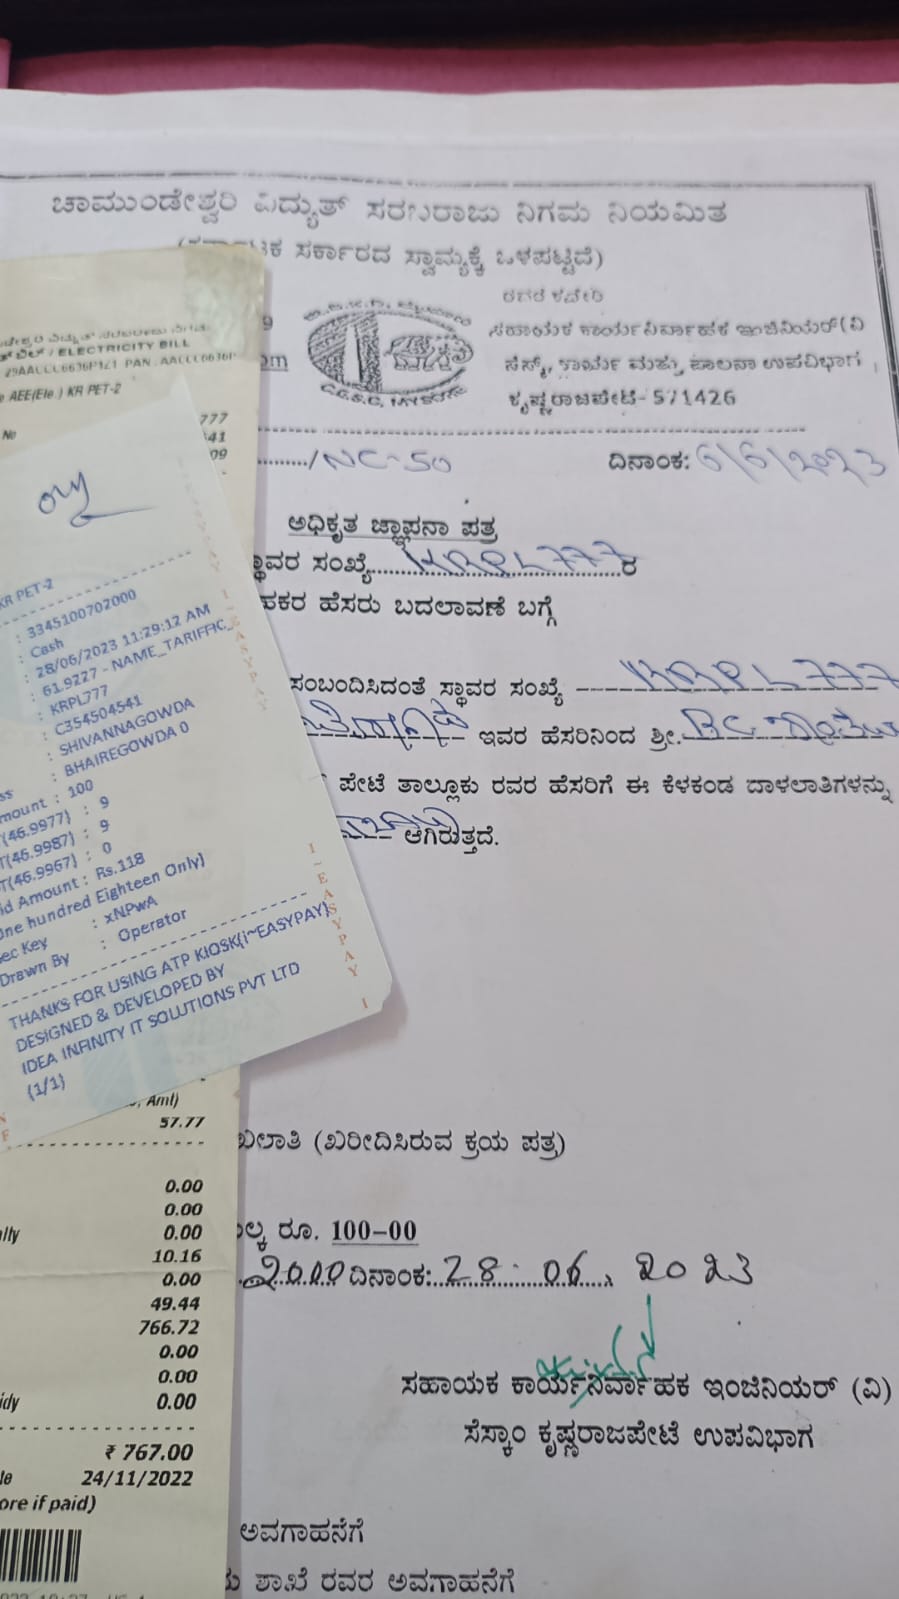 ಚಾಮುಂಡೇಶ್ವರಿ ವಿದ್ಯುತ್ ಸರಬರಾಜು ನಿಗಮ ನಿಯಮಿತ
ಸರ್ಕಾರದ ಸ್ವಾಮ್ಯಕ್ಕೆ ಒಳಪಟ್ಟಿದೆ)
ರವರ ಕಛೇರಿ
ಸಹಾಯಕ ಕಾರ್ಯನಿರ್ವಾಹಕ ಇಂಜಿನಿಯರ್(ವಿ
ಕಾರ್ಯ ಮತ್ತು ಪಾಲನಾ ಉಪವಿಭಾಗ
ಕೃಷ್ಣರಾಜಪೇಟೆ- 571426
/NC-50
ದಿನಾಂಕ: 6/6/2023
ಅಧಿಕೃತ ಜ್ಞಾಪನಾ ಪತ್ರ
ಸ್ಥಾವರ ಸಂಖ್ಯೆ KRPL777 ರ
ಹೆಸರು ಬದಲಾವಣೆ ಬಗ್ಗೆ
ಸಂಬಂದಿಸಿದಂತೆ ಸ್ಥಾವರ ಸಂಖ್ಯೆ KRPL777
ಇವರ ಹೆಸರಿನಿಂದ ಶ್ರೀ. BC
ಪೇಟೆ ತಾಲ್ಲೂಕು ರವರ ಹೆಸರಿಗೆ ಈ ಕೆಳಕಂಡ ದಾಳಲಾತಿಗಳನ್ನು
ಆಗಿರುತ್ತದೆ.
(ಖರೀದಿಸಿರುವ ಕ್ರಯ ಪತ್ರ)
ರೂ. 100-00
2000 ದಿನಾಂಕ: 28.06.2023
ಸಹಾಯಕ ಕಾರ್ಯನಿರ್ವಾಹಕ ಇಂಜಿನಿಯರ್ (ವಿ)
ಸೆಸ್ಕಾಂ ಕೃಷ್ಣರಾಜಪೇಟೆ ಉಪವಿಭಾಗ
ಅವಗಾಹನೆಗೆ
ಶಾಖೆ ರವರ ಅವಗಾಹನೆಗೆ
/ ELECTRICITY BILL
AEE(Ele.) KR PET-2
No
777
41
09
KR PET-2
: 3345100702000
: Cash
: 28/06/2023 11:29:12 AM
: 61.9227 - NAME_TARIFFIC_
: KRPL777
: C354504541
: SHIVANNAGOWDA
: BHAIREGOWDA 0
: 100
(46.9977) : 9
(46.9987) : 9
(46.9967) : 0
Amount : Rs.118
One hundred Eighteen Only)
Key : xNPwA
Drawn By : Operator
THANKS FOR USING ATP KIOSK(i~EASYPAY)
DESIGNED & DEVELOPED BY
IDEA INFINITY IT SOLUTIONS PVT LTD
(1/1)
I~EASYPAY I
Aml)
57.77
0.00
0.00
0.00
10.16
0.00
49.44
766.72
0.00
0.00
0.00
₹ 767.00
24/11/2022
if paid)